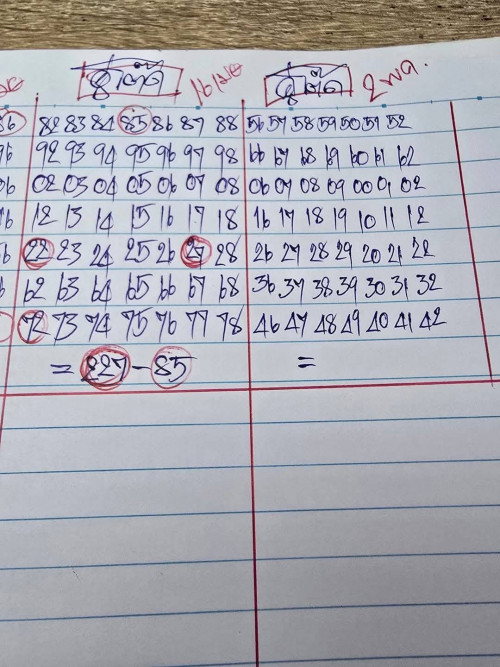 สูตรตัด 16 เมย สูตรตัด 2 พค.
86 82 83 84 85 86 87 88 56 57 58 59 50 51 52
96 92 93 94 95 96 97 98 66 67 68 69 60 61 62
06 02 03 04 05 06 07 08 06 07 08 09 00 01 02
16 12 13 14 15 16 17 18 16 17 18 19 10 11 12
26 22 23 24 25 26 27 28 26 27 28 29 20 21 22
62 63 64 65 66 67 68 36 37 38 39 30 31 32
72 73 74 75 76 77 78 46 47 48 49 40 41 42
= 227 - 85 =